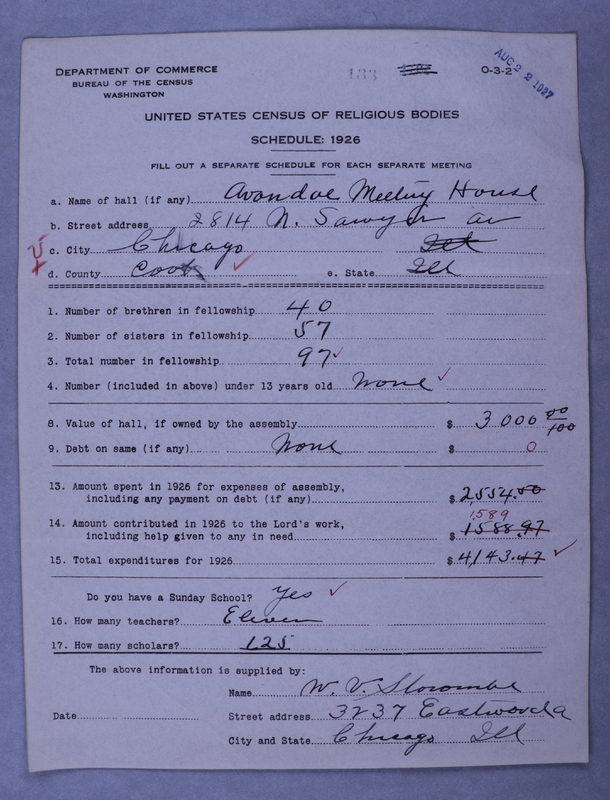 DEPARTMENT OF COMMERCE
BUREAU OF THE CENSUS
WASHINGTON
133
O-3-2
AUG 22 1927
UNITED STATES CENSUS OF RELIGIOUS BODIES
SCHEDULE: 1926
FILL OUT A SEPARATE SCHEDULE FOR EACH SEPARATE MEETING
a. Name of hall (if any) Avondale Meeting House
b. Street address 2814 N. Sawyer av
c. City Chicago
d. County Cook e. State Ill
1. Number of brethren in fellowship 40
2. Number of sisters in fellowship 57
3. Total number in fellowship 97
4. Number (included in above) under 13 years old None
8. Value of hall, if owned by the assembly $ 3000 00/100
9. Debt on same (if any) None $ 0
13. Amount spent in 1926 for expenses of assembly,
including any payment on debt (if any) $ 2,554.50
1,589
14. Amount contributed in 1926 to the Lord's work,
including help given to any in need $ 1588.97
15. Total expenditures for 1926 $ 4143.47
Do you have a Sunday School? Yes
16. How many teachers? Eleven
17. How many scholars? 125
The above information is supplied by:
Name W. V. Slocombe
Date Street address 3237 Eastwood a
City and State Chicago Ill